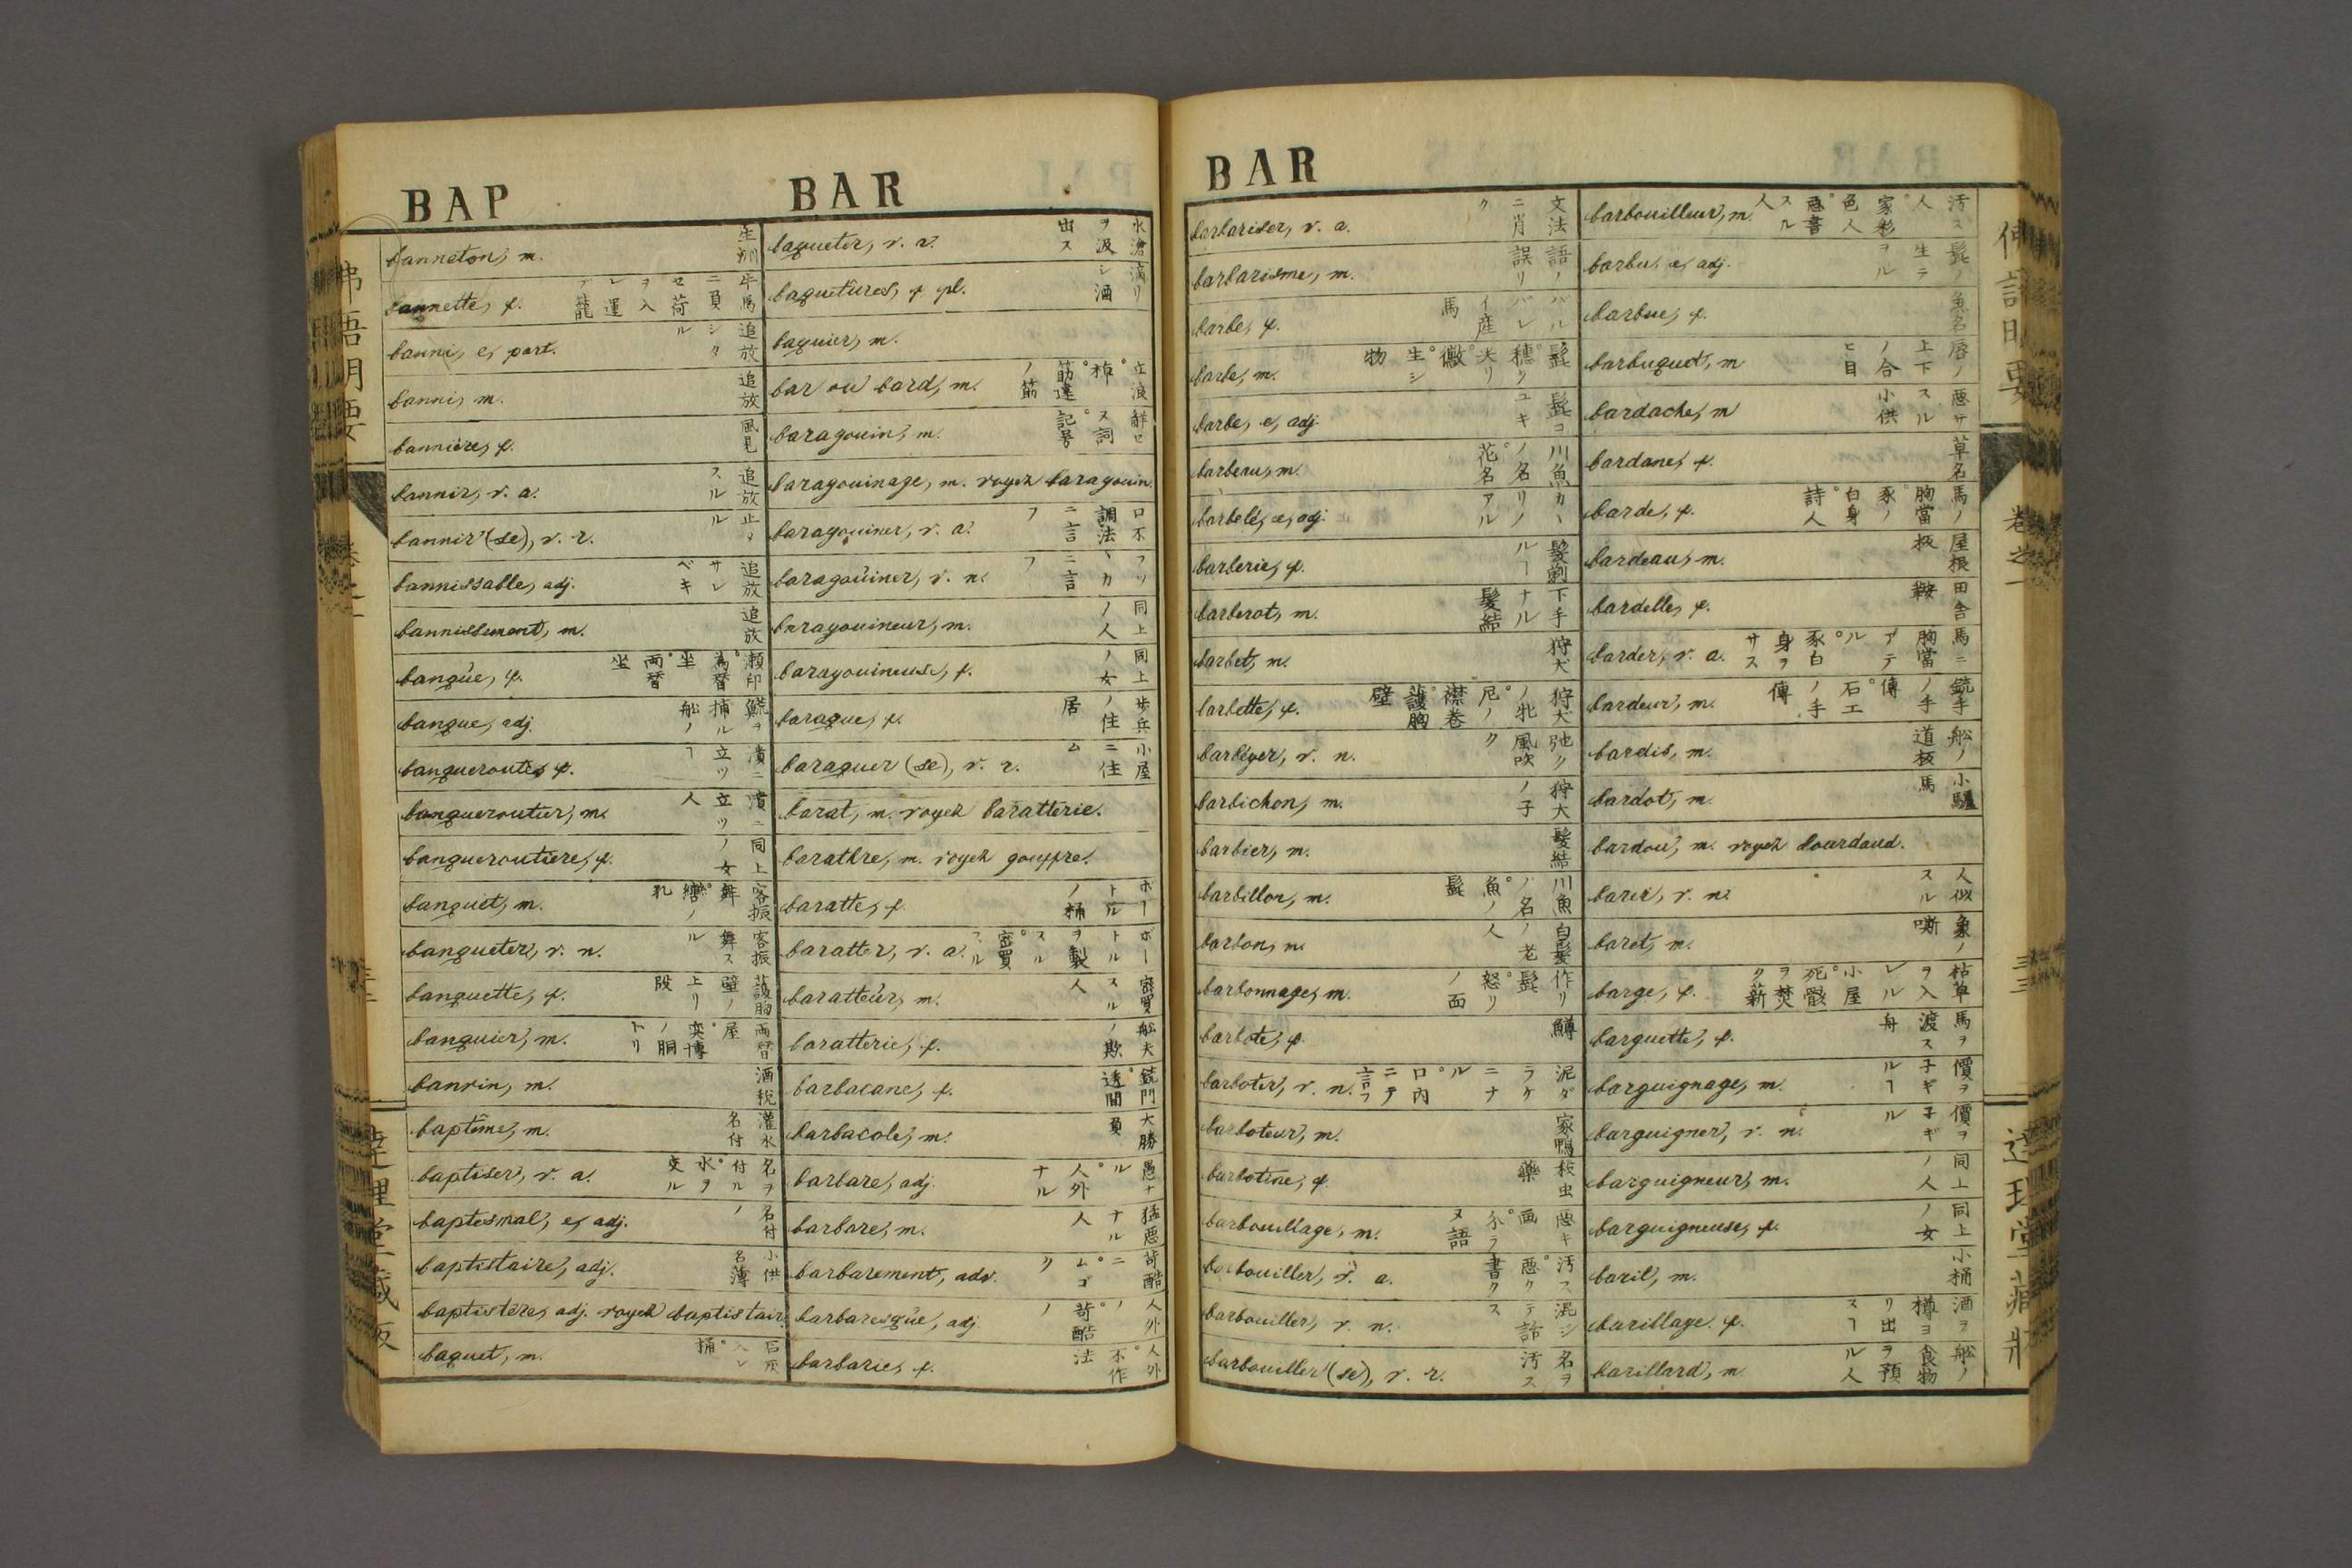 BAP
BAR
banneton, m. 生洲
bannette, f. 牛馬ニ負セ荷ヲ入レ運フ籠
banni, e, part. 追放シタル
banni, m. 追放
bannière, f. 風見
bannir, v. a. 追放スル
bannir (se), v. r. 止ル
bannissable, adj. 追放サレベキ
bannissement, m. 追放
banque, f.
banque, adj. 鱈ヲ捕ル舩ノ
banqueroute, f. 潰ニ立ツヿ
banqueroutier, m. 潰ニ立ツ人
banqueroutière, f. 同上ノ女
banquet, m. 客振舞°轡ノ孔
banqueter, v. n. 客振舞スル
banquette, f. 護胸壁ノ上リ段
banquier, m. 両替屋°奕博ノ胴トリ
banvin, m. 酒税
baptême, m. 灌水名付
baptiser, v. a. 名ヲ付ル°水ヲ交ル
baptismal, e, adj. 名付ノ
baptistaire, adj. 小供名簿
baptistère, adj. voyez baptistair.
baquet, m. 石灰入レ桶
baqueter, v. a. 水滄ヲ汲出ス
baquetures, f. pl. 滴リシ酒
baquier, m.
bar ou bard, m.
baragouin, m. 解セヌ詞°記号
baragouinage, m. voyez baragouin.
baragouiner, v. a. 口不調法ニ言フ
baragouiner, v. n. フツヽカニ言フ
baragouineur, m. 同上ノ人
baragouineuse, f. 同上ノ女
baraque, f. 歩兵ノ住居
baraquer (se), v. r. 小屋ニ住ム
barat, m. voyez baratterie.
barathre, m. voyez gouffre.
baratte, f. ホートルノ桶
baratter, v. a. ボートルヲ製スル°密買スル
baratteur, m. 密買スル人
baratterie, f. 舩夫ノ欺
barbacane, f. 銃門°透間
barbacole, m. 大勝負
barbare, adj. 愚ナル°人外ナル
barbare, m. 猛悪ナル人
barbarement, adv. 苛酷ニ°ムゴク
barbaresque, adj. 人外ノ°苛酷ノ
barbarie, f. 人外°不作法
BAR
barbariser, v. a. 文法ニ背ク
barbarisme, m. 語ノ誤リ
barbe, f. バルバレイ産馬
barbe, m.
barbé, e, adj. 髭コユキ
barbeau, m. 川魚ノ名°花名
barbelé, e, adj. カヽリノアル
barberie, f. 髪剃ルヿ
barberot, m. 下手ナル髪結
barbet, m. 狩犬
barbette, f. 狩犬ノ牝°尼ノ襟巻°護胸壁
barbeyer, v. n. 弛ク風吹ク
barbichon, m. 狩犬ノ子
barbier, m. 髪結
barbillon, m. 川魚ノ名°魚ノ髭
barbon, m. 白髪ノ老人
barbonnage, m. 作リ髭°怒リノ面
barbote, f. 鱒
barboter, v. n. 泥ダラケニナル°口内ニテ言フ
barboteur, m. 家鴨
barbotine, f. 殺虫藥
barbouillage, m. 悪キ画°分ラヌ語
barbouiller, v. a. 汚ス°悪ク書ク
barbouiller, v. n. 混シテ話ス
barbouiller (se), v. r. 名ヲ汚ス
barbouilleur, m. 汚ス人°家彩色人°悪書スル人
barbu, e, adj. 髭ノ生ヲル
barbue, f. 魚名
barbuquet, m. 唇ノ上下ノ合ヒ目
bardache, m. 悪サスル小供
bardane, f. 草名
barde, f. 馬ノ胸當°豕ノ白身°詩人
bardeau, m. 屋根板
bardelle, f. 田舎鞍
barder, v. a. 馬ニ胸當アテル°豕白身ヲサス
bardeur, m. 銃手ノ手傳°石工ノ手傳
bardis, m. 舩ノ道板
bardot, m. 小驢馬
bardou, m. voyez lourdaud.
barer, v. n. 人似スル
baret, m. 象ノ嘶
barge, f. 枯草ヲ入レル小屋°死骸ヲ焚ク薪
barguette, f. 馬ヲ渡ス舟
barguignage, m. 價ヲ子ギルヿ
barguigner, v. n. 價ヲ子ギル
barguigneur, m. 同上ノ人
barguigneuse, f. 同上ノ女
baril, m. 小桶
barillage. f. 酒ヲ樽ヨリ出スヿ
barillard, m. 舩ノ食物ヲ預ル人
卷之一
三三
達理堂藏版